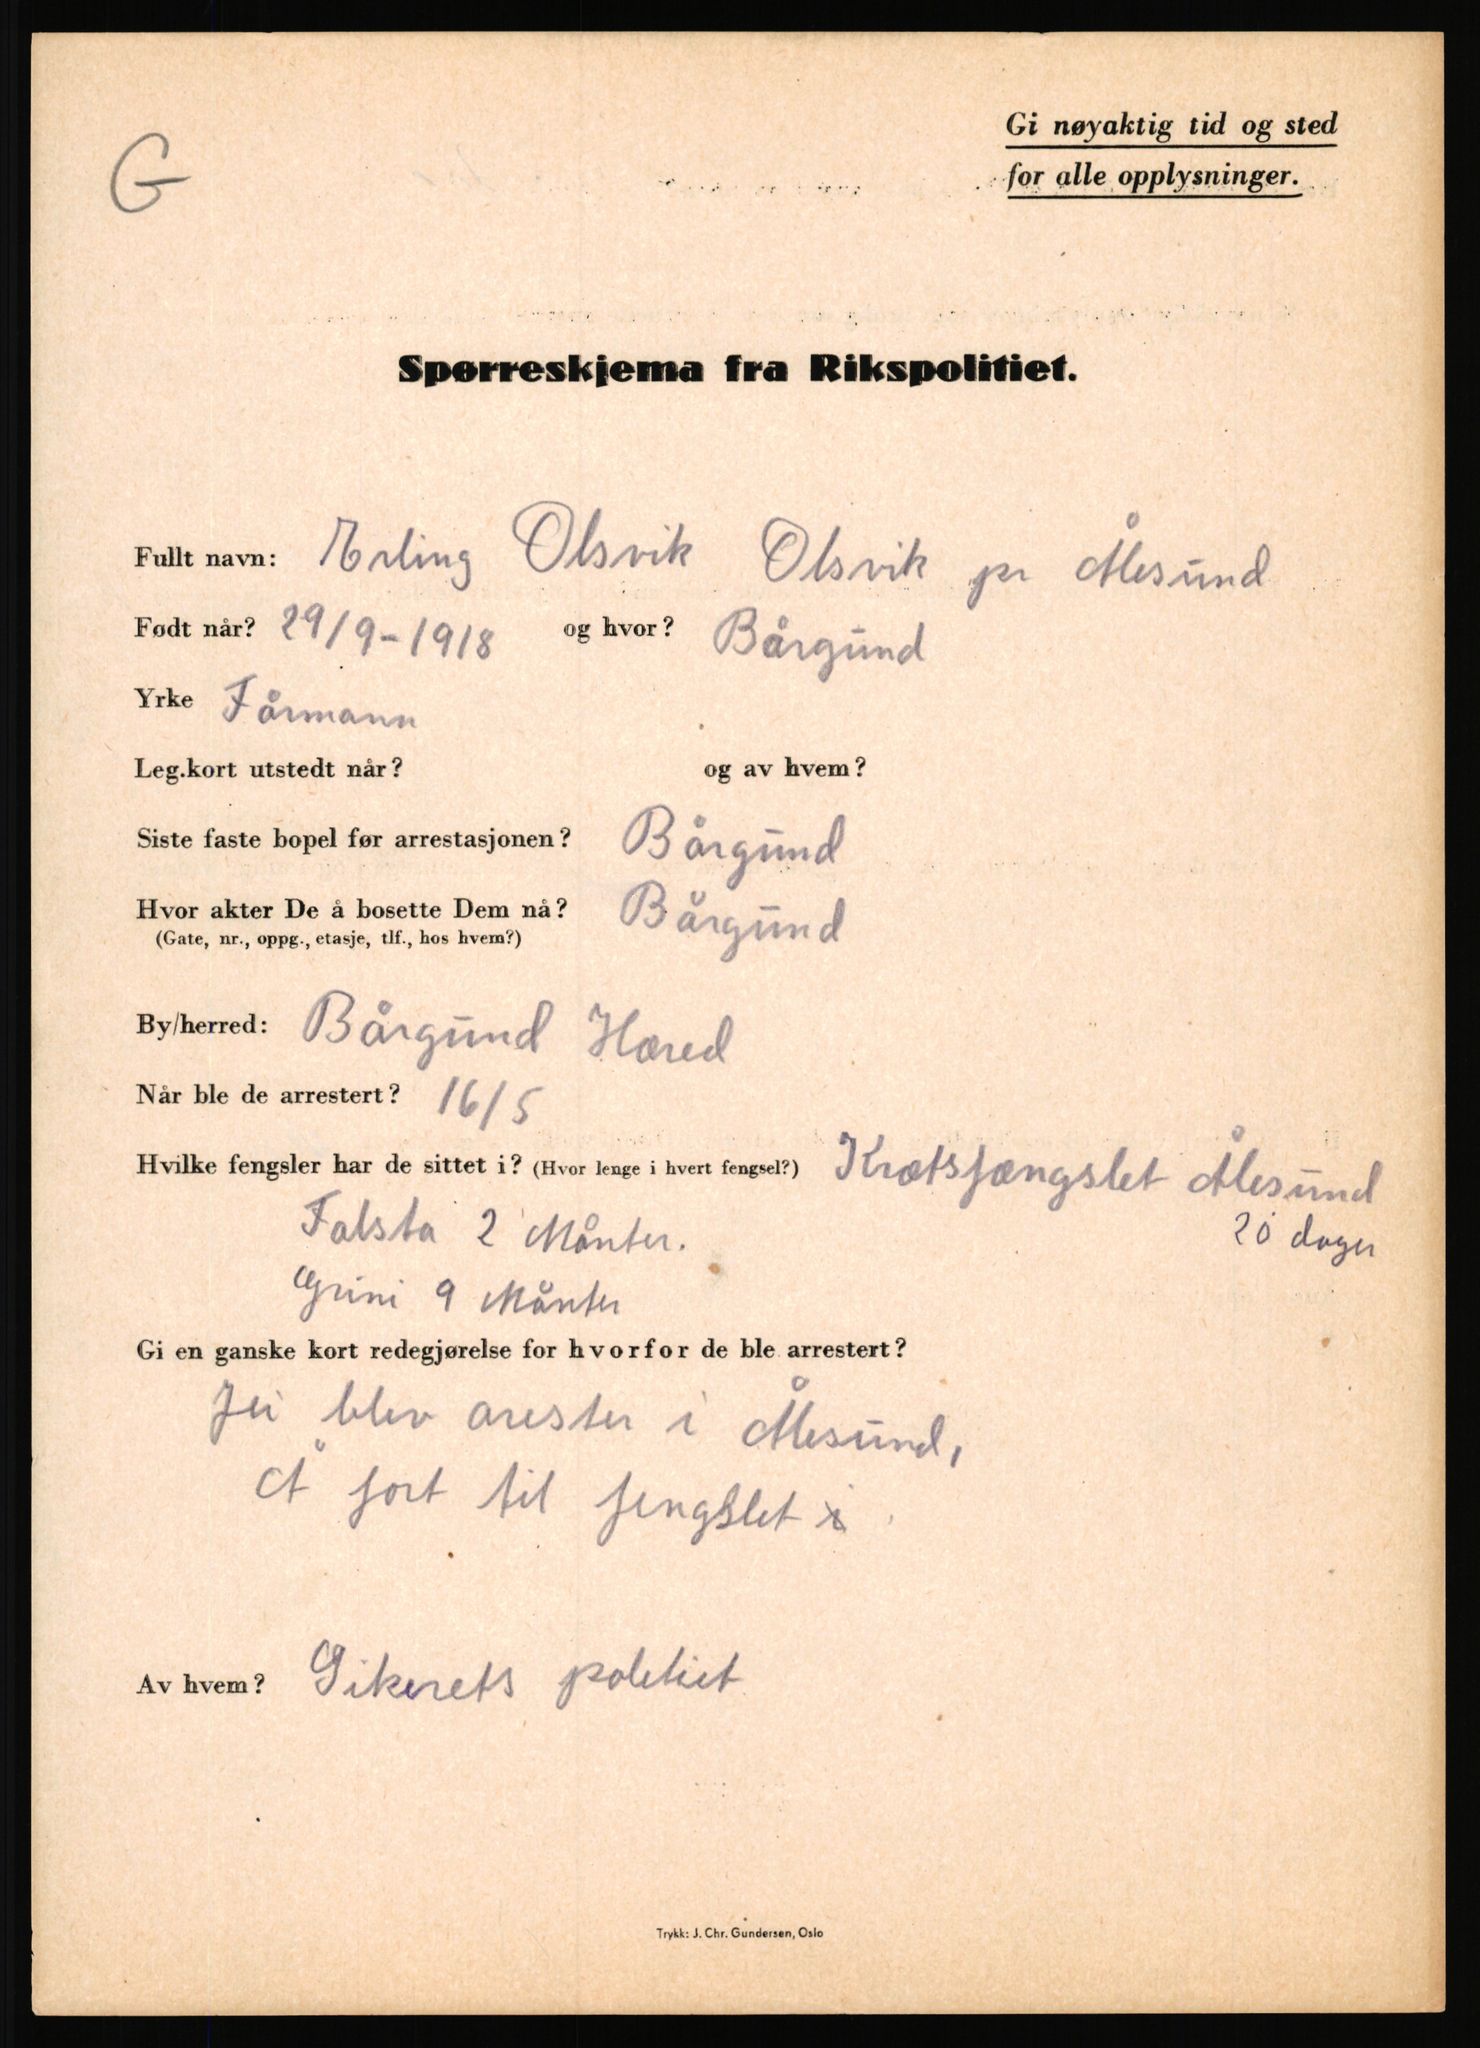 G
Gi nøyaktig tid og sted
for alle opplysninger.
Spørreskjema fra Rikspolitiet.
Fullt navn: Erling Olsvik Olsvik pr Ålesund
Født når? 29/9-1918 og hvor? Bårgund
Yrke Fårmann
Leg.kort utstedt når? og av hvem?
Siste faste bopel før arrestasjonen? Bårgund
Hvor akter De å bosette Dem nå? Bårgund
(Gate, nr., oppg., etasje, tlf., hos hvem?)
By/herred: Bårgund Hæred
Når ble de arrestert? 16/5
Hvilke fengsler har de sittet i? (Hvor lenge i hvert fengsel?) Krætsfængslet Ålesund
20 dager
Falsta 2 Månter.
Grini 9 Månter
Gi en ganske kort redegjørelse for hvorfor de ble arrestert?
Jei blev arester i Ålesund,
Å fort til fengslet
Av hvem? Sikerets politiet
Trykk: J. Chr. Gundersen, Oslo